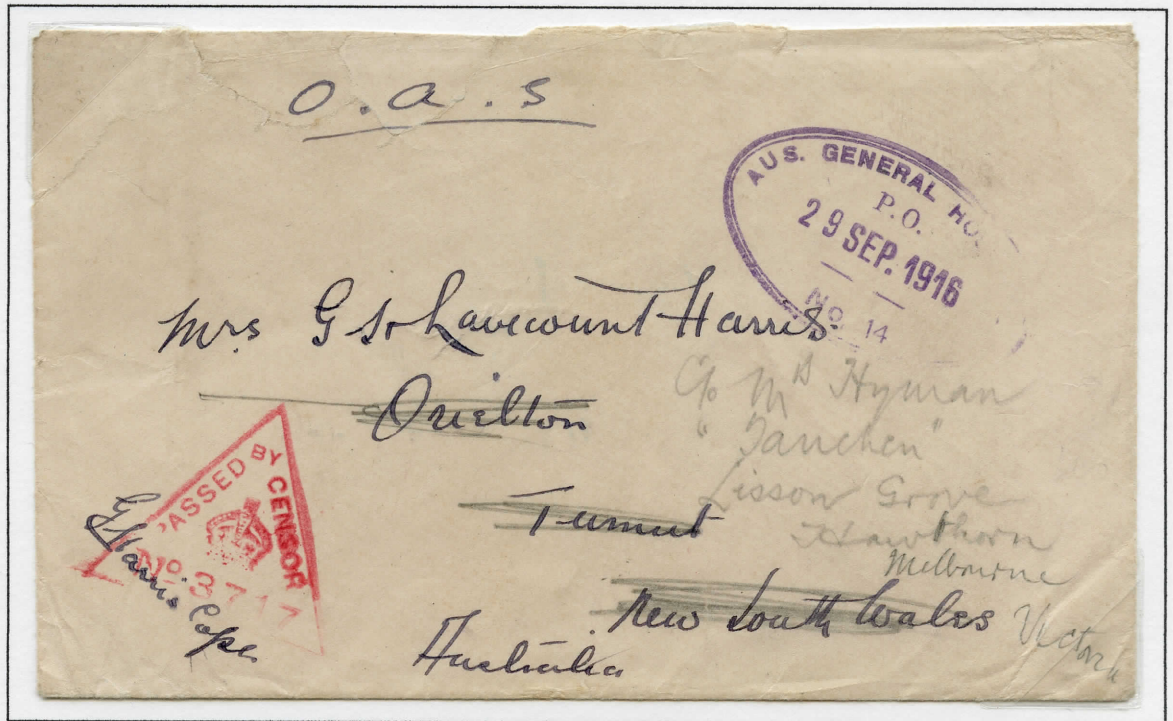 O. A. S
AUS. GENERAL HO
P.O.
29 SEP. 1916
No. 14
Mrs G St Lavecount Harris
Orielton
Tumut
New South Wales
Australia
C/o Mrs Hyman
Lisson Grove
Hawthorn
Melbourne
Victoria
PASSED BY CENSOR
No 3717
G Harris Capt